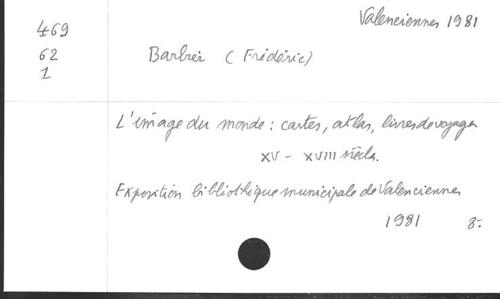 Valenciennes 1981
469
62
1
Barbier (Frédéric)
L'image du monde : cartes, atlas, livres de voyages
XV - XVIII siècles.
Exposition bibliothèque municipale de Valenciennes
1981 8.